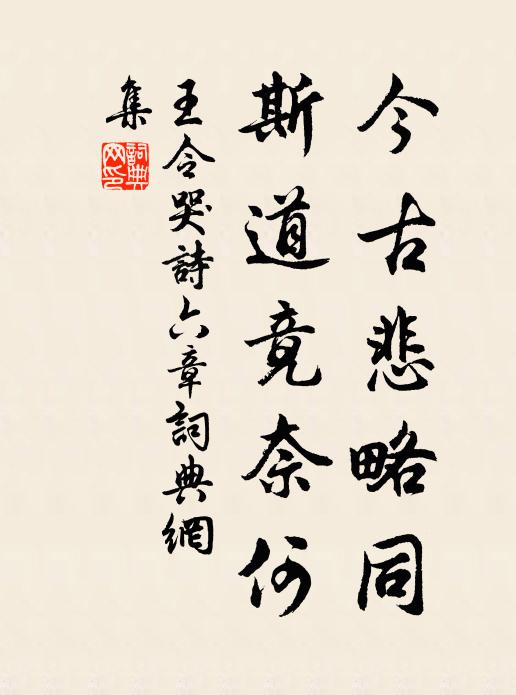 今古悲略同
斯道竟奈何
王令哭詩六章詞典網
集
詞典
网印